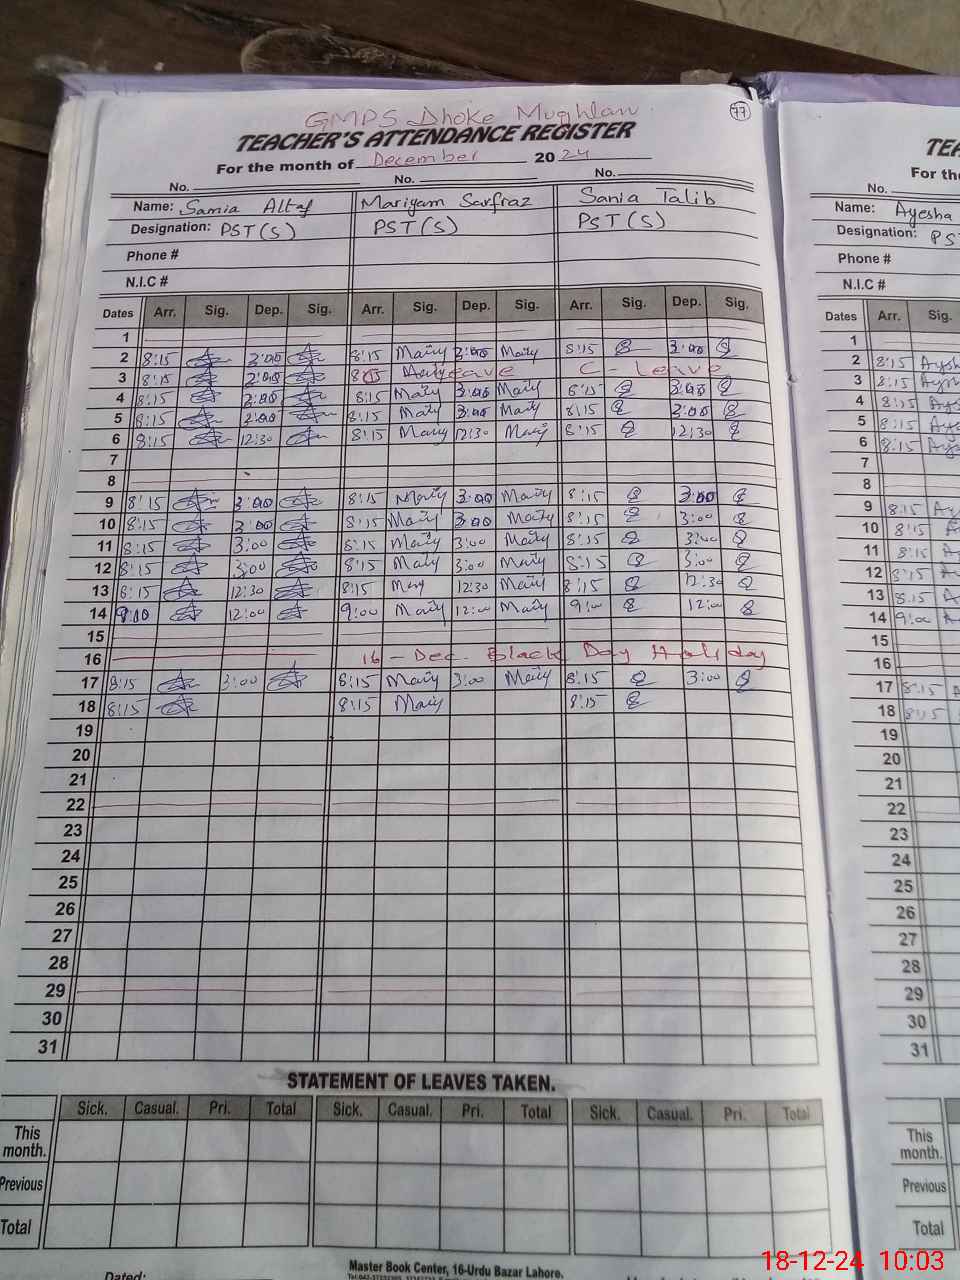 GMPS Dhoke Mughlan 77
TEACHER'S ATTENDANCE REGISTER
For the month of December 2024
No. No. No.
Name: Samia Altaf Mariyam Sarfraz Sania Talib
Designation: PST(S) PST(S) PST(S)
Phone #
N.I.C #
Dates Arr. Sig. Dep. Sig. Arr. Sig. Dep. Sig. Arr. Sig. Dep. Sig.
1
2 8:15 3:00 8:15 3:00 8:15 3:00
3 8:15 3:00 Leave C - Leave
4 8:15 3:00 8:15 3:00 8:15 3:00
5 8:15 3:00 8:15 3:00 8:15 3:00
6 8:15 12:30 8:15 12:30 8:15 12:30
7
8
9 8:15 3:00 8:15 3:00 8:15 3:00
10 8:15 3:00 8:15 3:00 8:15 3:00
11 8:15 3:00 8:15 3:00 8:15 3:00
12 8:15 3:00 8:15 3:00 8:15 3:00
13 8:15 12:30 8:15 12:30 8:15 12:30
14 9:00 12:00 9:00 12:00 9:00 12:00
15
16 16 - Dec. Black Day Holiday
17 8:15 3:00 8:15 3:00 8:15 3:00
18 8:15 8:15 8:15
19
20
21
22
23
24
25
26
27
28
29
30
31
STATEMENT OF LEAVES TAKEN.
Sick. Casual. Pri. Total Sick. Casual. Pri. Total Sick. Casual. Pri. Total
This month.
Previous
Total
Dated:
Master Book Center, 16-Urdu Bazar Lahore.
TEA
For the
No.
Name: Ayesha
Designation: PST
Phone #
N.I.C #
Dates Arr. Sig.
1
2 8:15
3 8:15
4 8:15
5 8:15
6 8:15
7
8
9 8:15
10 8:15
11 8:15
12 8:15
13 8:15
14 9:00
15
16
17 8:15
18 8:15
19
20
21
22
23
24
25
26
27
28
29
30
31
Sick.
This month.
Previous
Total
18-12-24 10:03